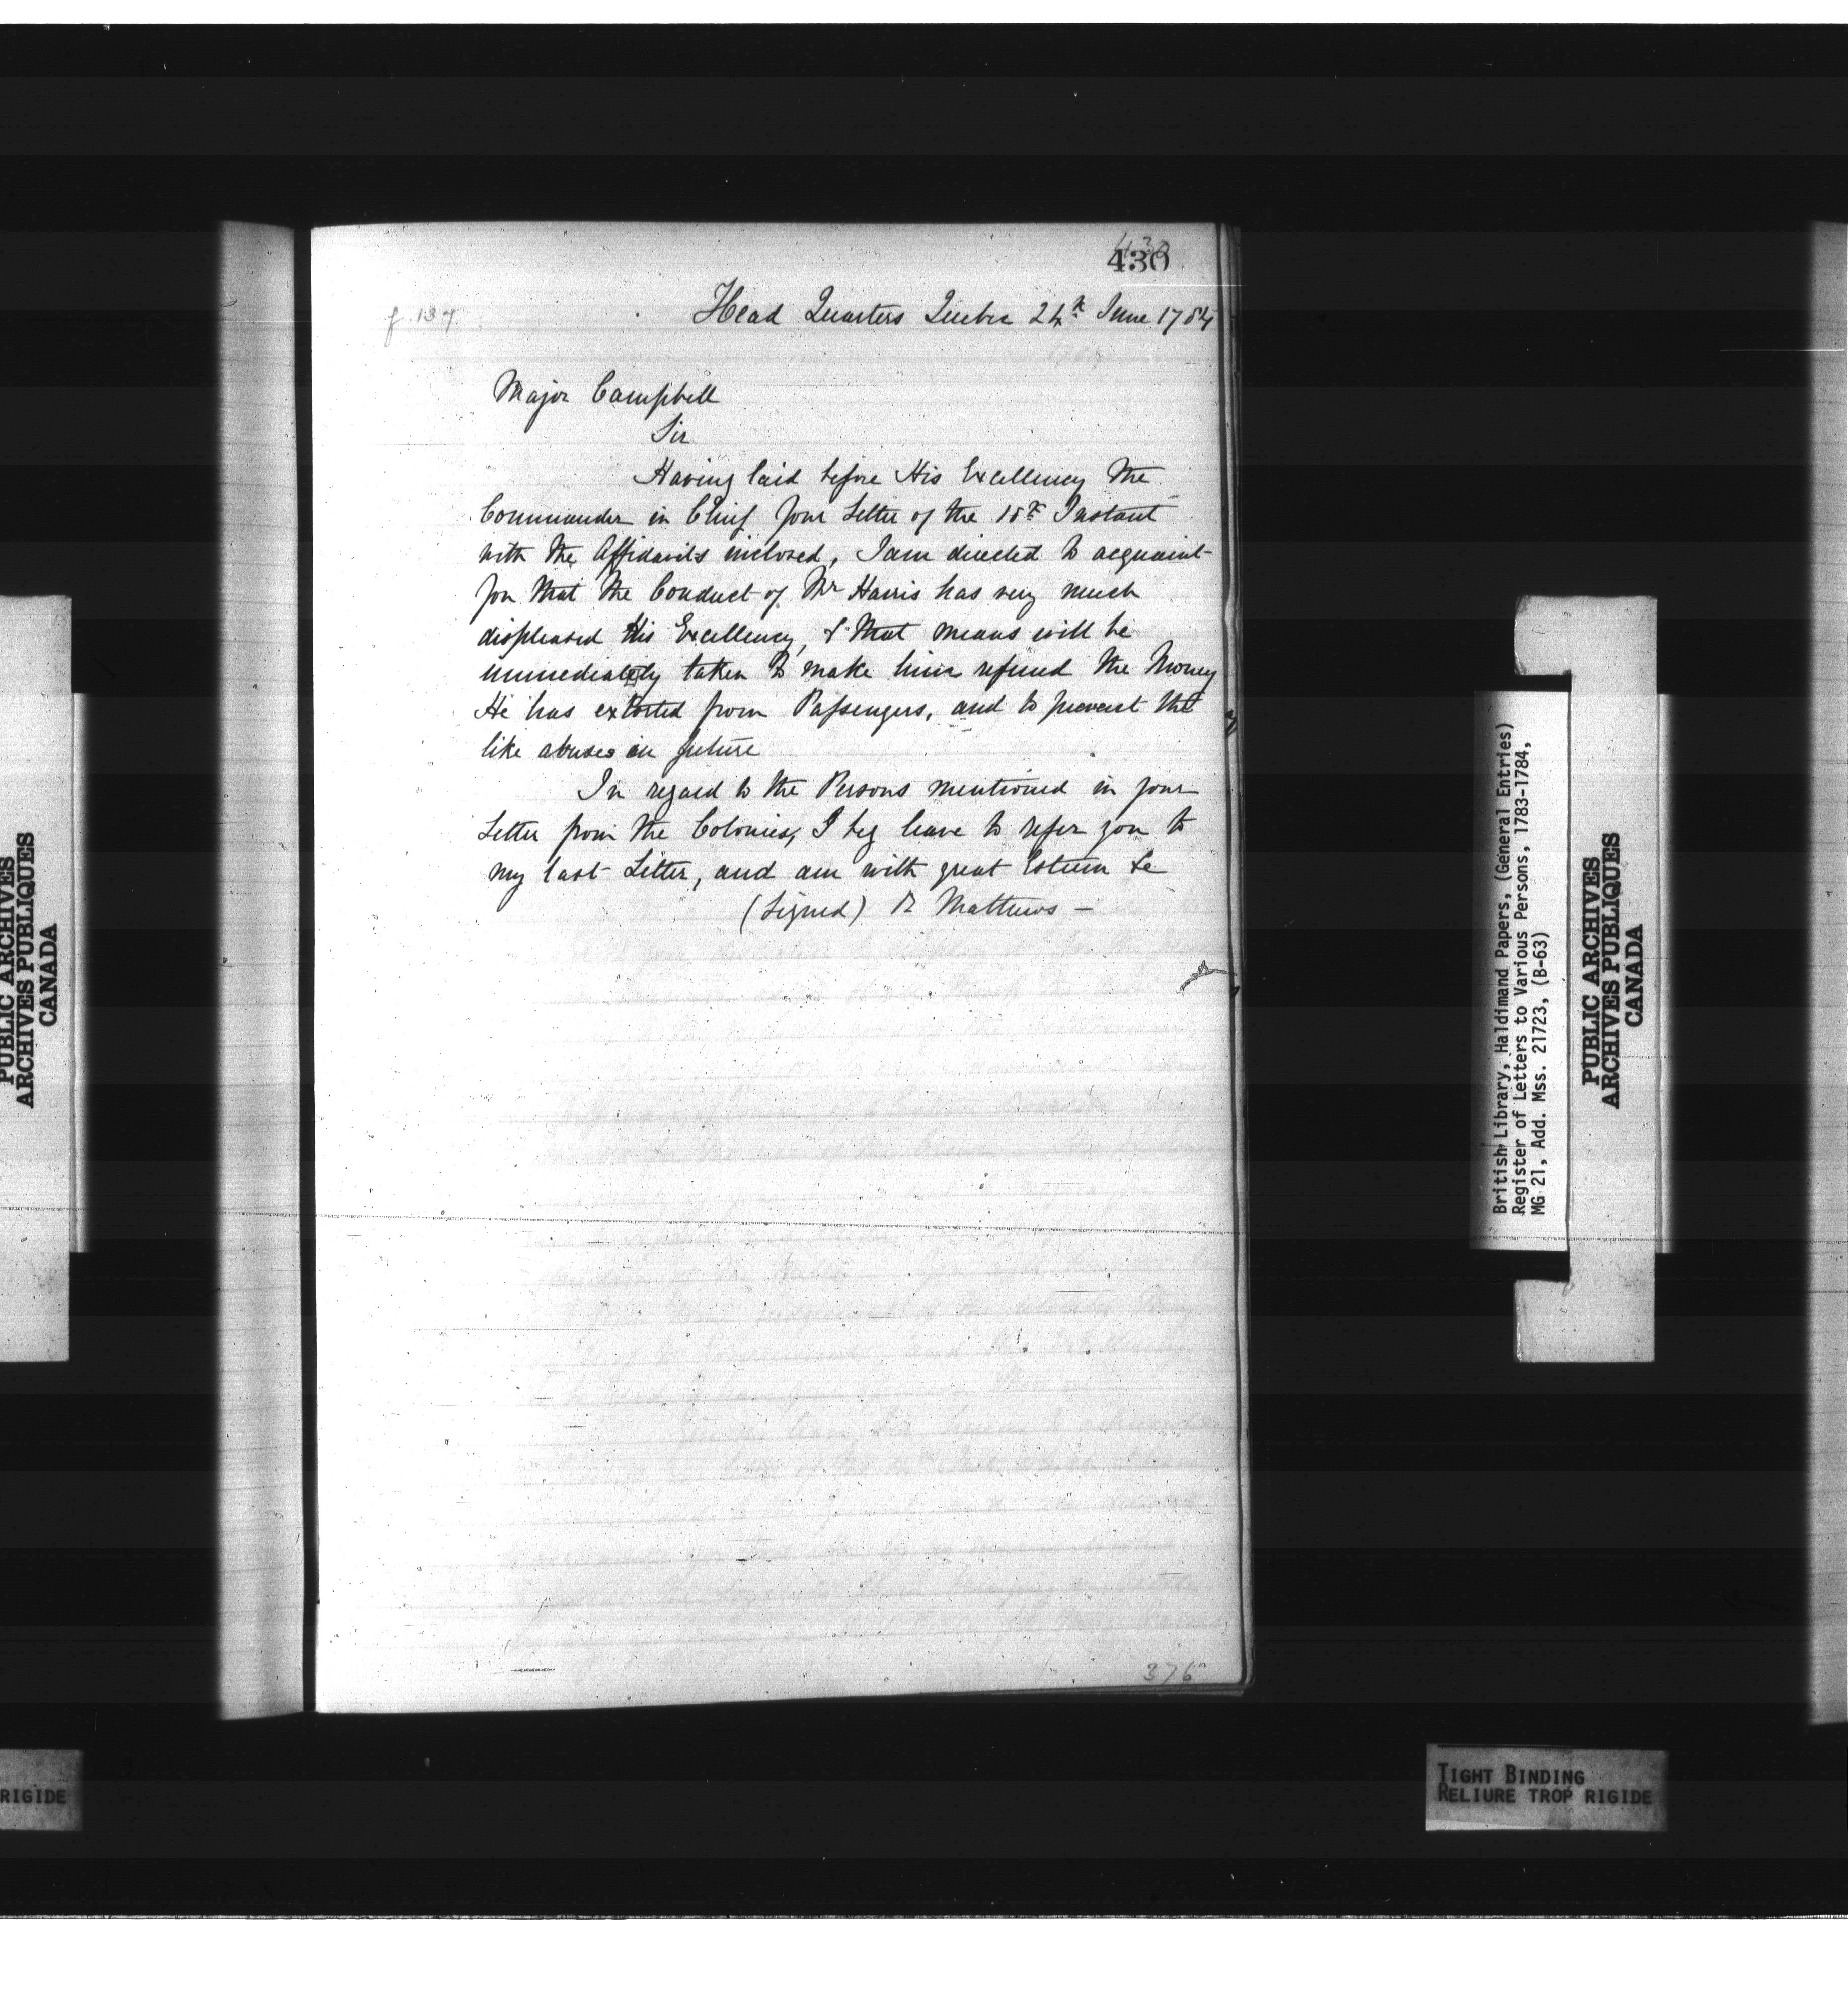 430
430
f. 137
Head Quarters Quebec 24th June 1784
Major Campbell
Sir
Having laid before His Excellency the
Commander in Chief your Letter of the 18th Instant
with the Affidavits inclosed, I am directed to acquaint
you that the Conduct of Mr Harris has very much
displeased His Excellency, & that means will be
immediately taken to make him refund the Money
He has extorted from Passengers, and to prevent the
like abuses in future
In regard to the Persons mentioned in your
Letter from the Colonies, I beg leave to refer you to
my last Letter, and am with great Esteem &c
(Signed) R Mathews –
376
British Library, Haldimand Papers, (General Entries)
Register of Letters to Various Persons, 1783-1784,
MG 21, Add. Mss. 21723, (B-63)
PUBLIC ARCHIVES
ARCHIVES PUBLIQUES
CANADA
TIGHT BINDING
RELIURE TROP RIGIDE
PUBLIC ARCHIVES
ARCHIVES PUBLIQUES
CANADA
RIGIDE